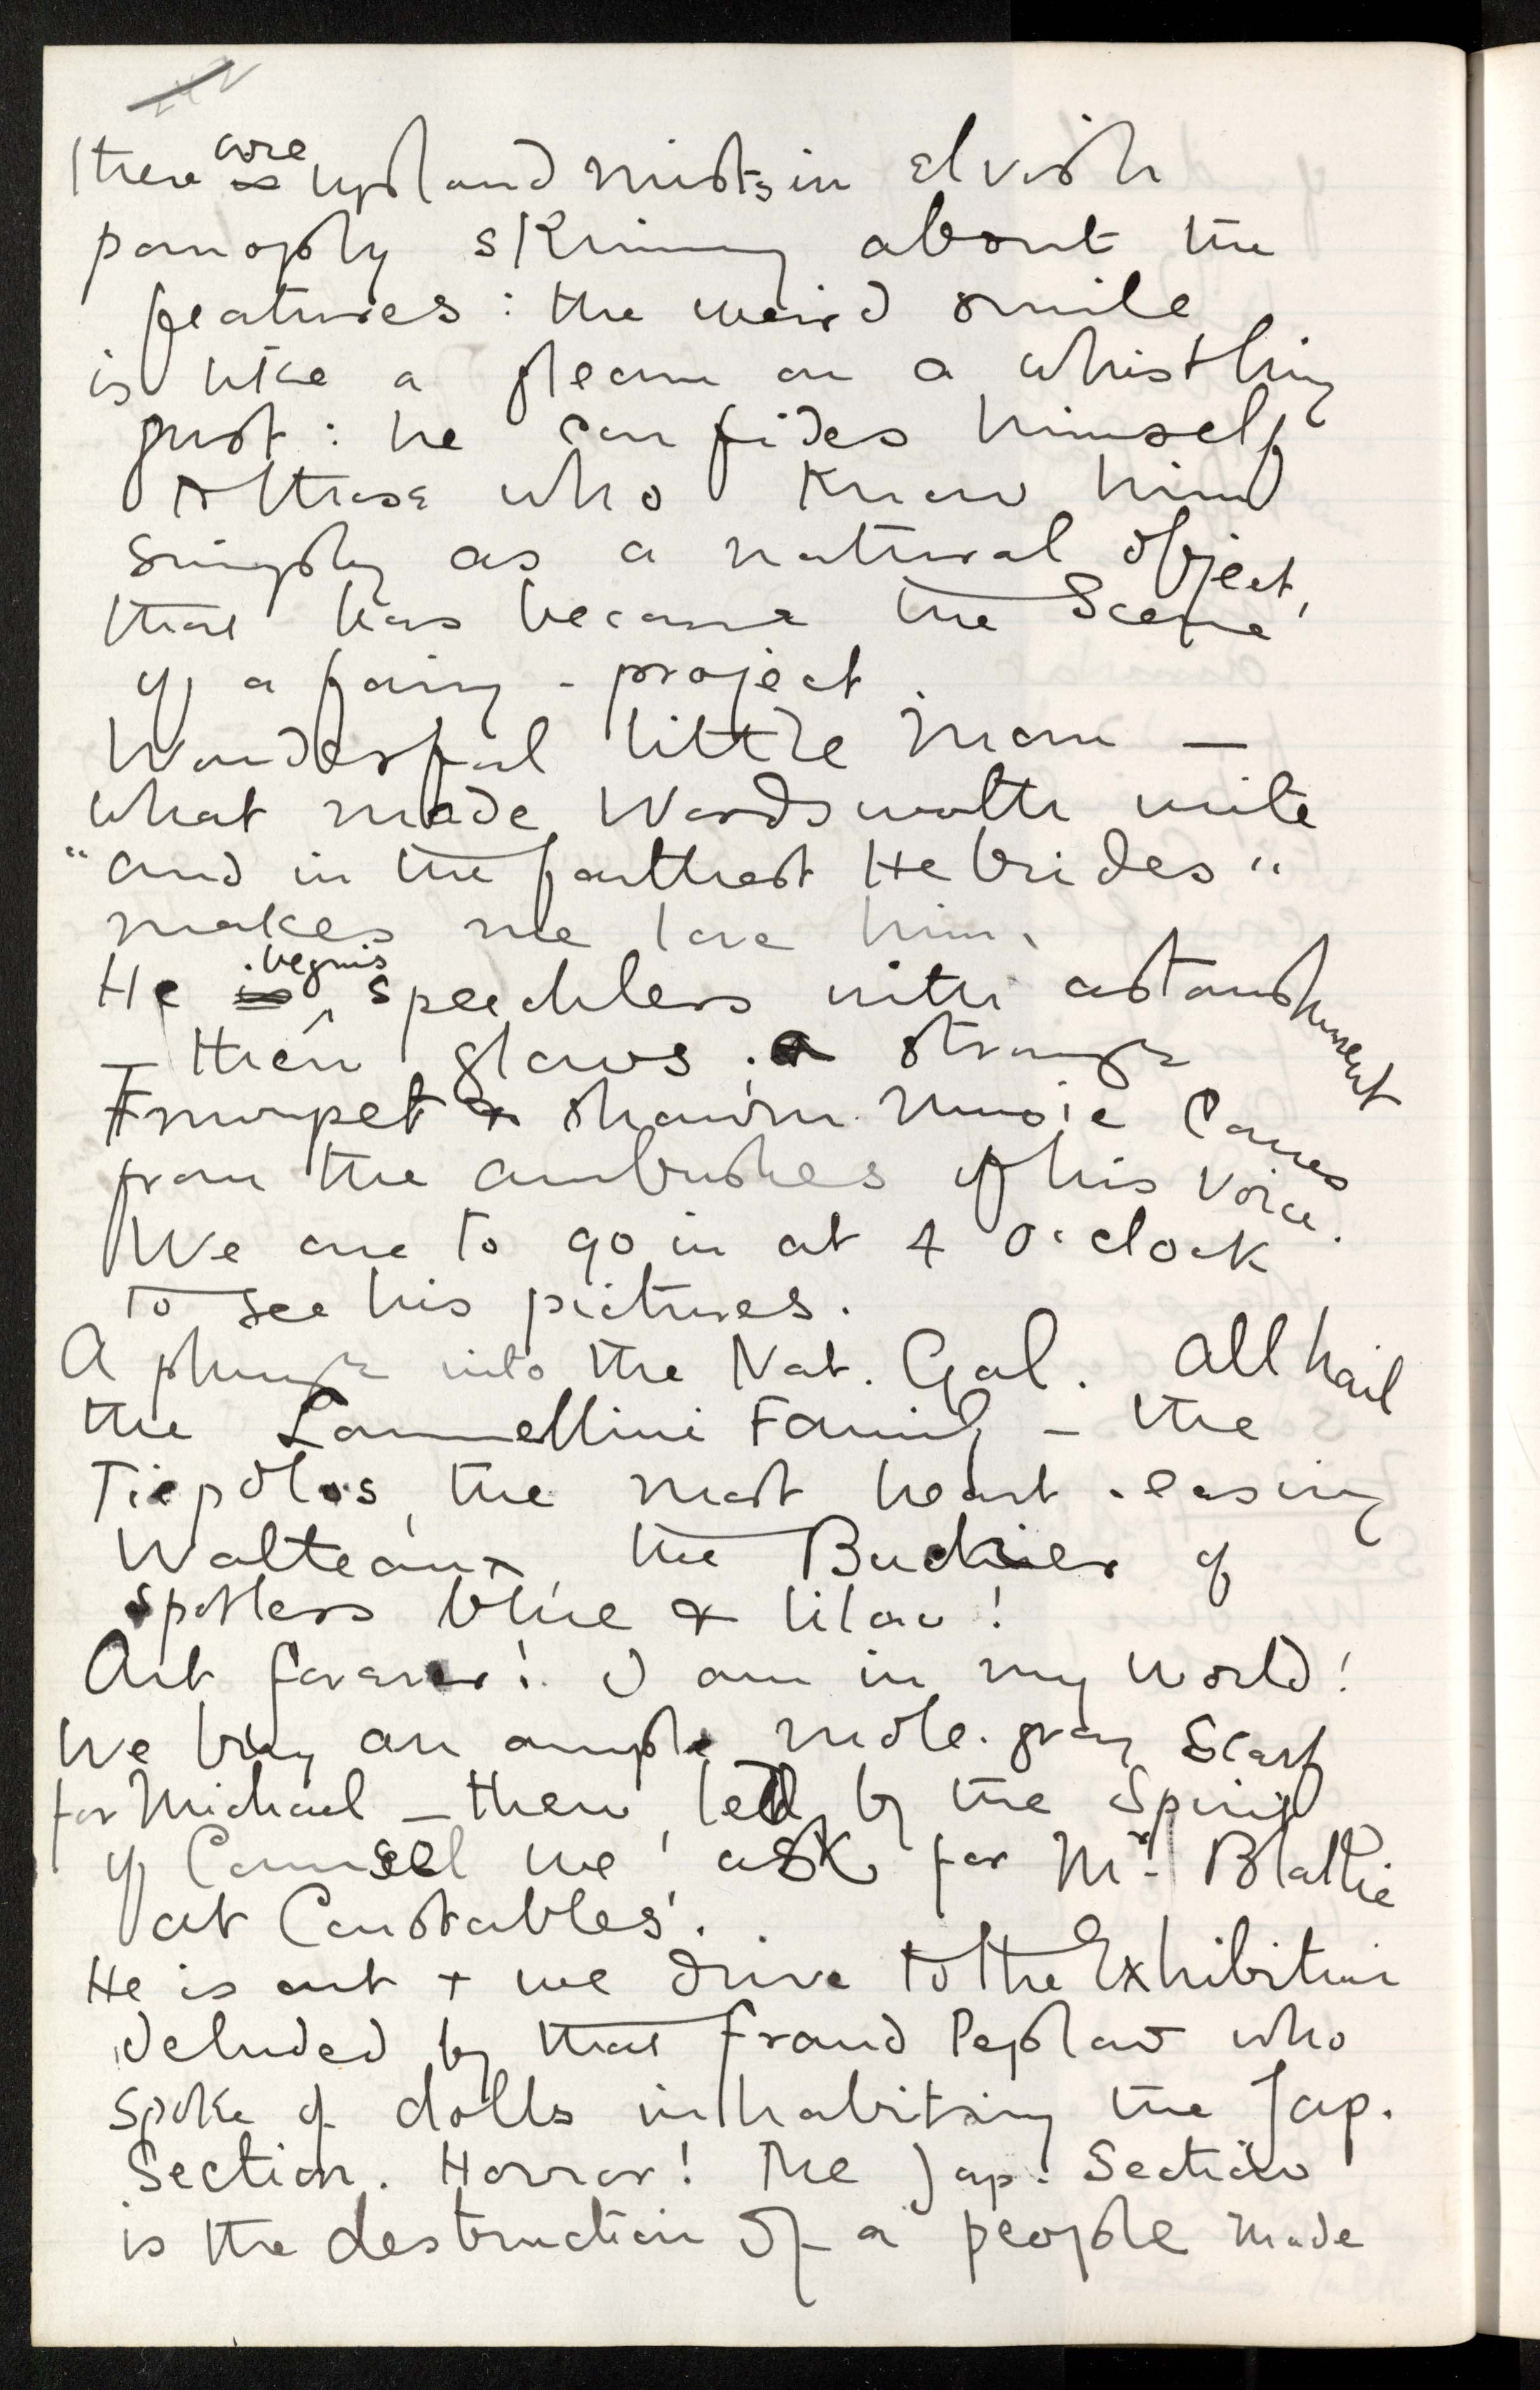 there are upland mists in elvish
panoply skimming about the
features : the weird smile
is like a gleam on a whistling
gust : he confides himself
to those who know him
simply as a natural object,
that has become the Scene
of a fairy - project.
Wonderful little man —
what made Wordsworth write
"and in the farthest Hebrides"
makes me love him.
He begins speechless with astonishment
— then glows : a strange
Trumpet & shawm music comes
from the ambushes of his voice.
We are to go in at 4 o'clock
to see his pictures.
A plunge into the Nat. Gal. All hail
the Lomellini Family — the
Tiepolos, the most heart-easing
Watteaux, the Bucher of
spotless blue & lilac !
Art forever! I am in my world!
We buy an ample mole-gray Scarf
for Michael — then, led by the Spirit
of Counsel we ask for Mr. Blaikie
at Constables'.
He is out + we drive to the Exhibition
deluded by that fraud Peplow who
spoke of dolls inhabiting the Jap.
Section. Horror! The Jap. Section
is the destruction of a people made